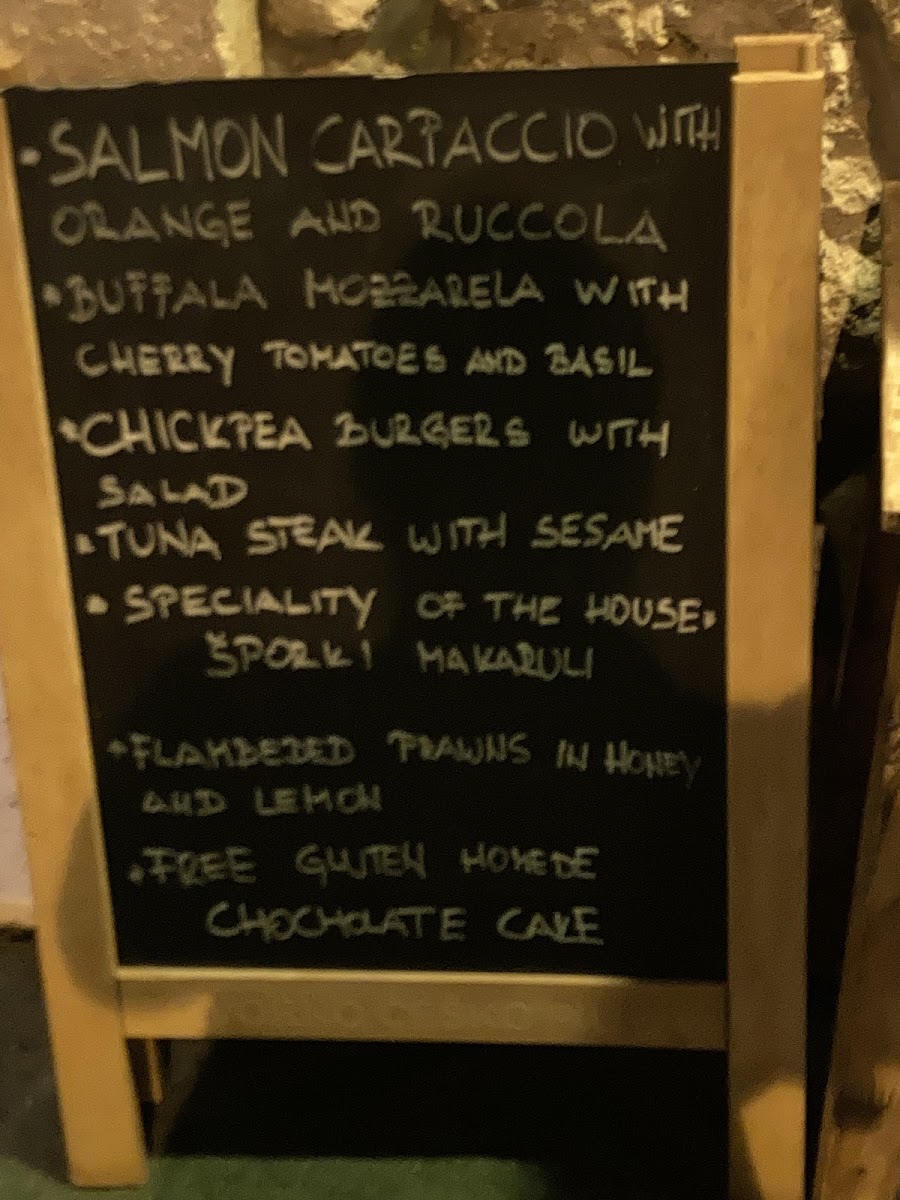 • SALMON CARPACCIO WITH
ORANGE AND RUCCOLA
• BUFFALA MOZZARELA WITH
CHERRY TOMATOES AND BASIL
• CHICKPEA BURGERS WITH
SALAD
• TUNA STEAK WITH SESAME
• SPECIALITY OF THE HOUSE•
ŠPORKI MAKARULI
• FLAMBEDED PRAWNS IN HONEY
AND LEMON
• FREE GLUTEN HOMEDE
CHOCHOLATE CAKE